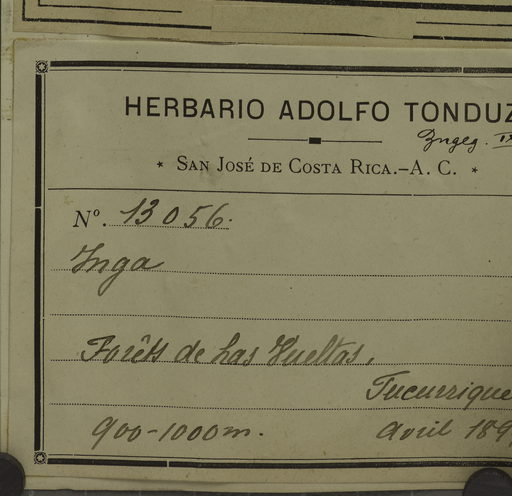 HERBARIO ADOLFO TONDUZ
* SAN JOSÉ DE COSTA RICA.-A. C. *
Nº. 13056.
Inga
Forêts de Las Vueltas,
Tucurrique
900-1000m.
Avril 189